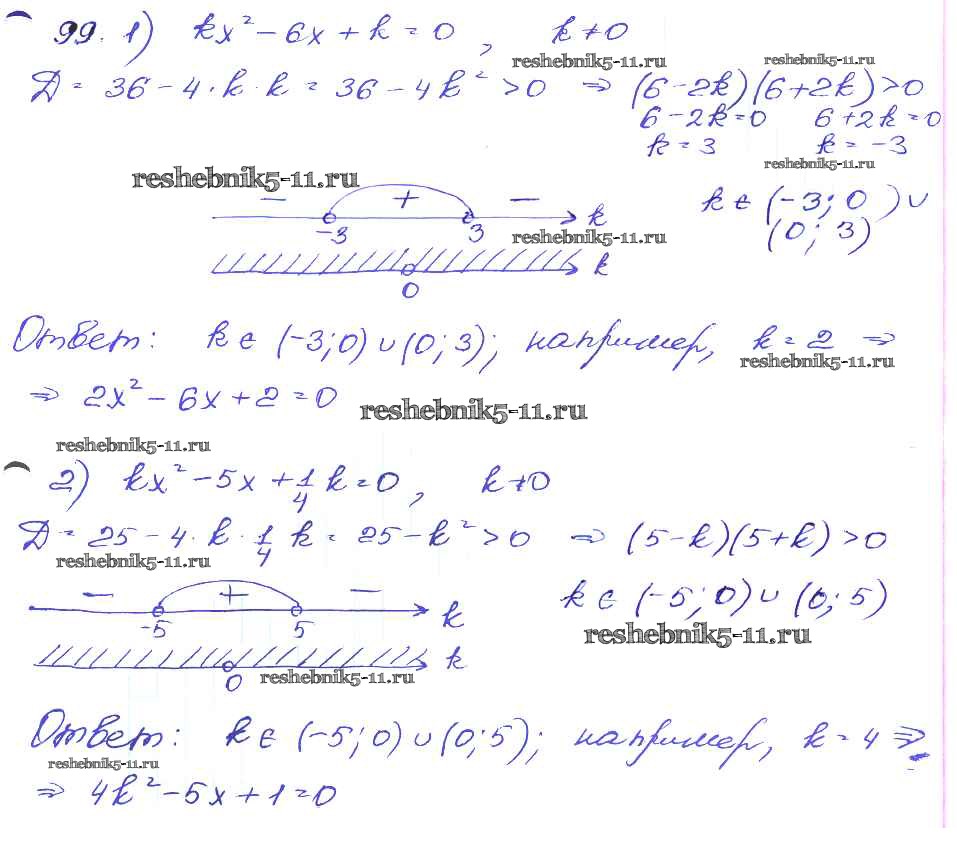 99. 1) kx² - 6x + k = 0, k ≠ 0
reshebnik5-11.ru reshebnik5-11.ru
Д = 36 - 4 · k · k = 36 - 4k² > 0 ⇒ (6 - 2k)(6 + 2k) > 0
6 - 2k = 0 6 + 2k = 0
k = 3 k = -3
reshebnik5-11.ru reshebnik5-11.ru
- + - k k ∈ (-3; 0) ∪
-3 3 reshebnik5-11.ru (0; 3)
k
0
Ответ: k ∈ (-3; 0) ∪ (0; 3); например, k = 2 ⇒
reshebnik5-11.ru
⇒ 2x² - 6x + 2 = 0
reshebnik5-11.ru
reshebnik5-11.ru
2) kx² - 5x + 1/4 k = 0, k ≠ 0
Д = 25 - 4 · k · 1/4 k = 25 - k² > 0 ⇒ (5 - k)(5 + k) > 0
reshebnik5-11.ru
- + - k k ∈ (-5; 0) ∪ (0; 5)
-5 5 reshebnik5-11.ru
k
0 reshebnik5-11.ru
Ответ: k ∈ (-5; 0) ∪ (0; 5); например, k = 4 ⇒
reshebnik5-11.ru
⇒ 4k² - 5x + 1 = 0